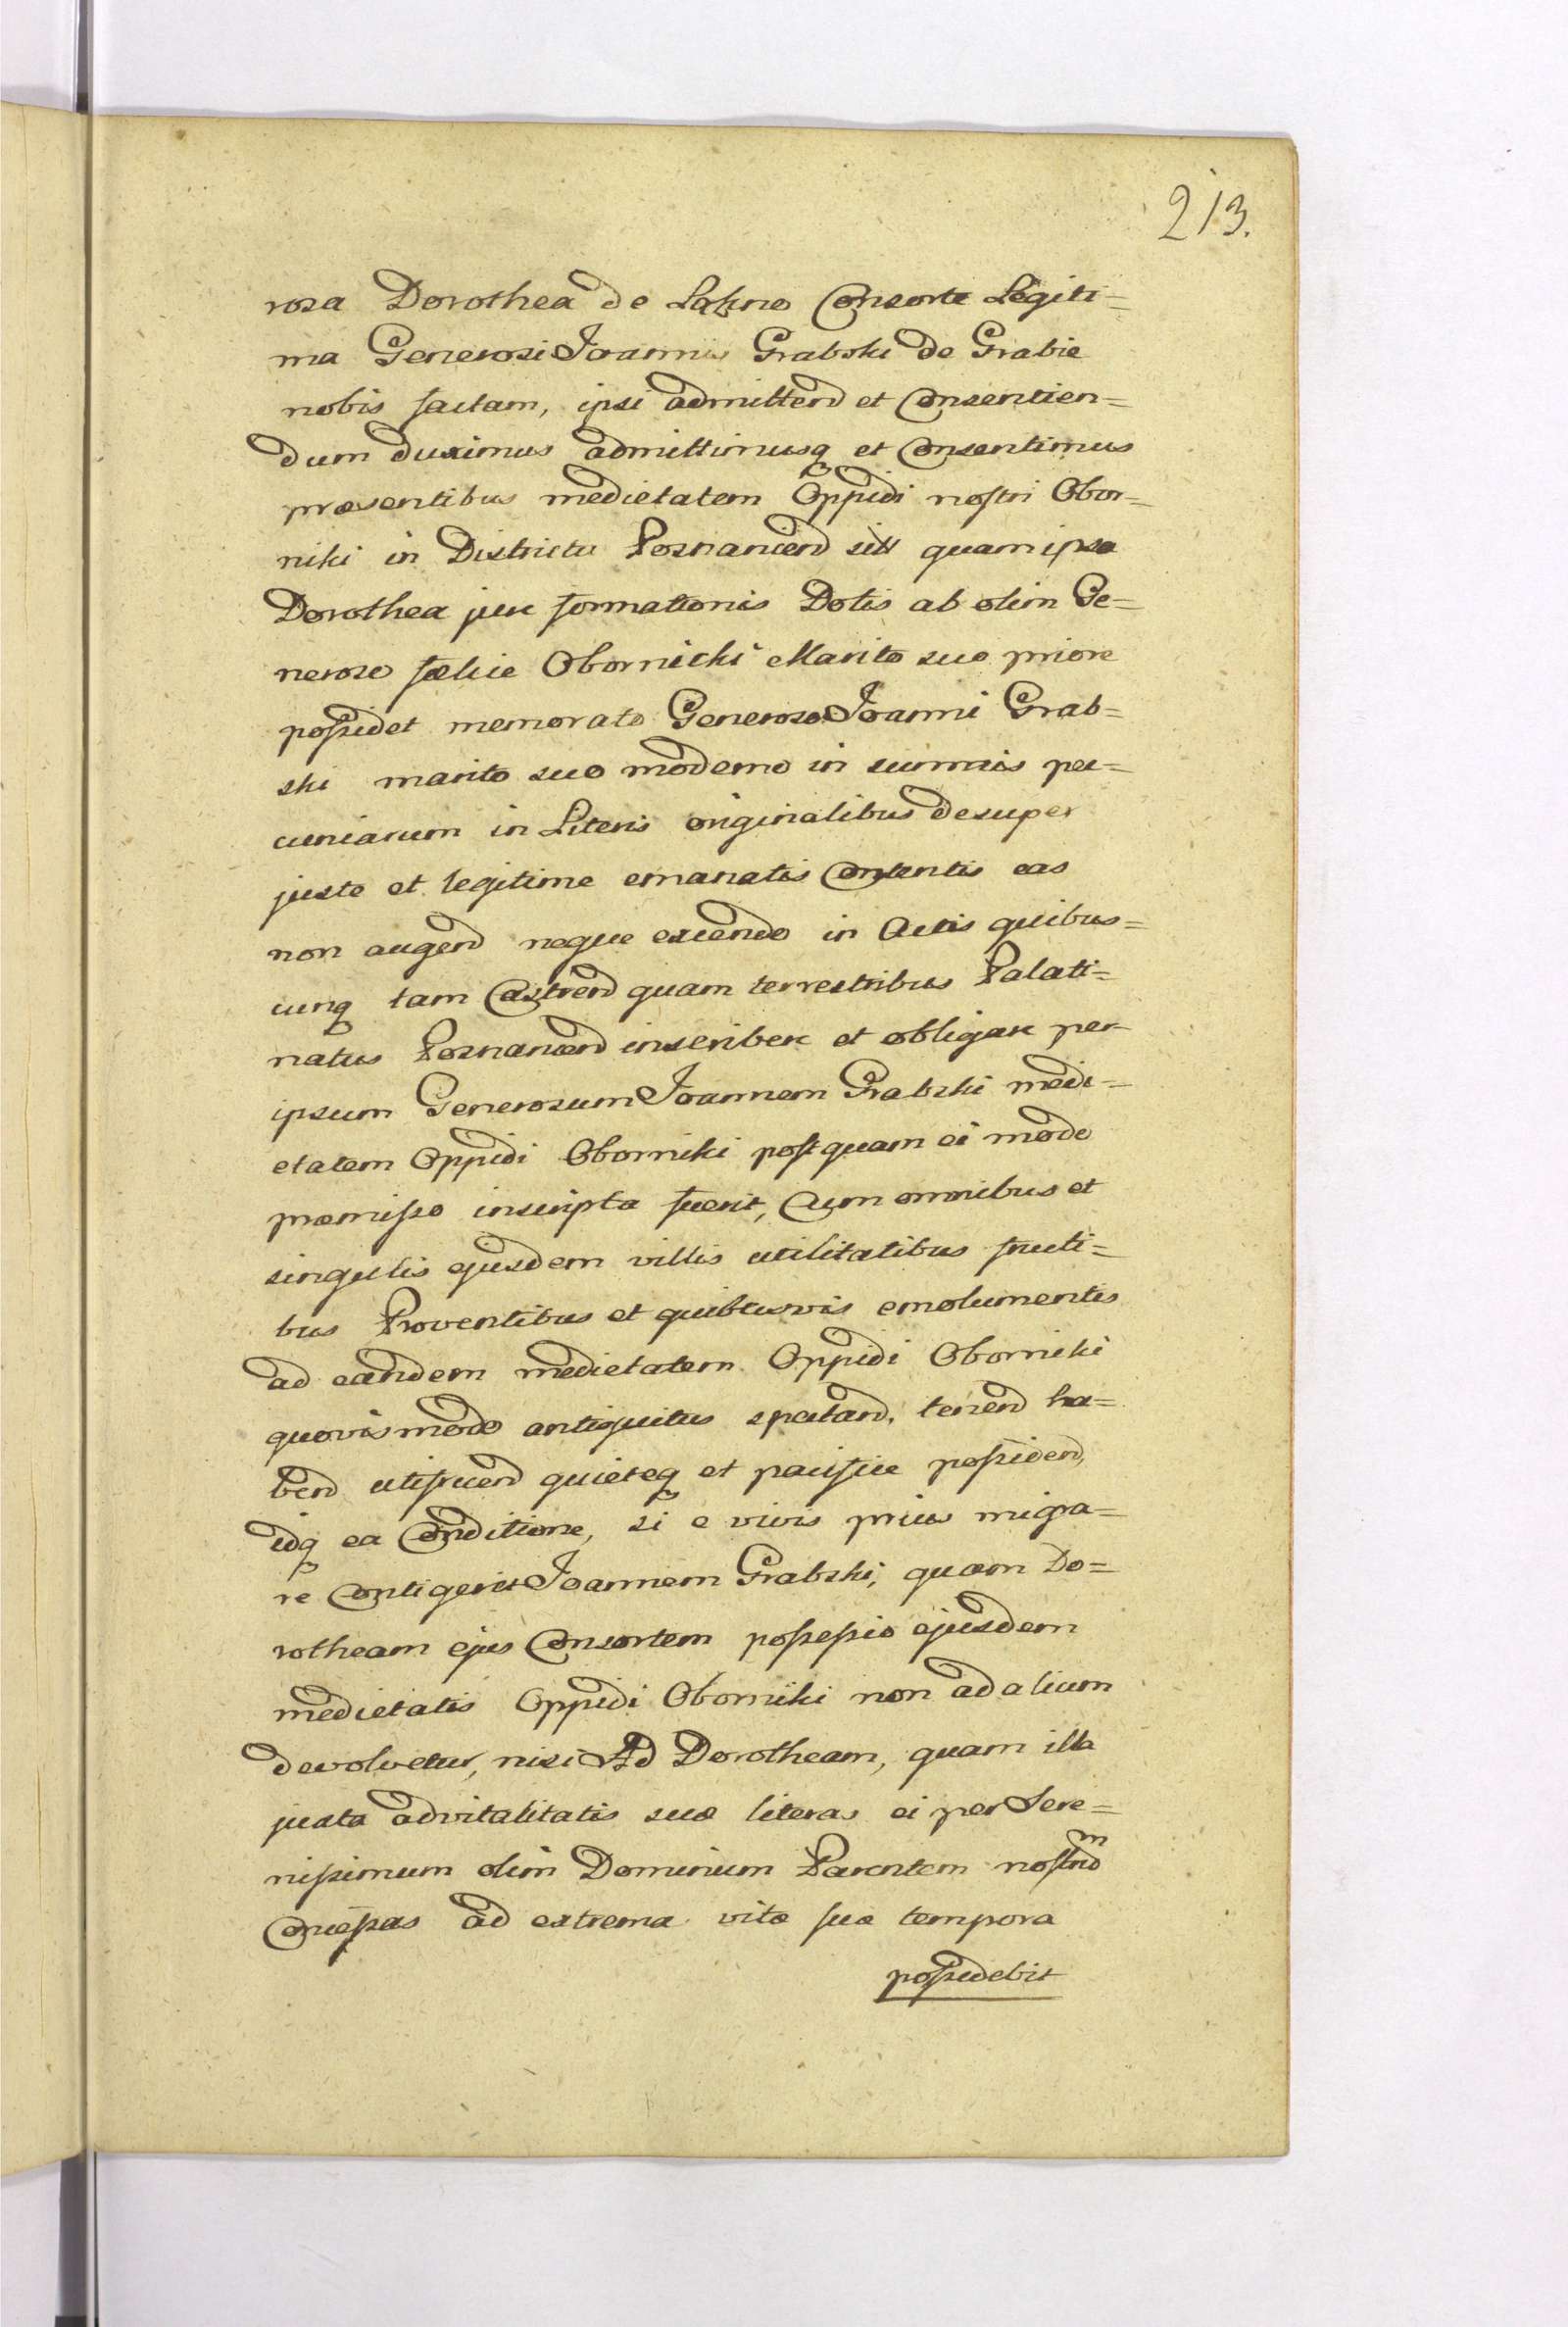 213.
rosa Dorothea de Consorte Legiti=
ma Generosi Joannis Grabski de Grabie
nobis factam, ipsi admittend et Consentien=
dum duximus admittimusq et Consentimus
præsentibus medietatem Oppidi nostri Obor=
niki in Districtu Posnaniend sitt quam ipsa
Dorothea jure formationis Dotis ab olim Ge=
neroso fœlice Obornicki Marito suo priore
possidet memorato Generoso Joanni Grab=
ski marito suo moderno in summis pec=
cuniarum in Literis originalibus desuper
juste et legitime emanatis Contentis eas
non augend neque excendo in Actis quibus=
cunq tam Castrend quam terrestribus Palati=
natus Posnaniend inscribere et obligare per
ipsum Generosum Joannem Grabski medi=
etatem Oppidi Oborniki postquam ei modo
præmisso inscripta fuerit, Cum omnibus et
singulis ejusdem villis utilitatibus fructi=
bus Proventibus et quibusvis emolumentis
ad eandem medietatem Oppidi Oborniki
quovismodo antiquitus spectand, tenend ha=
bend utifruend quieteq et pacifice possidend,
idq ea Conditione, si e vivis prius migra=
re Contigerit Joannem Grabski, quam Do=
rotheam ejus Consortem possessio ejusdem
medietatis Oppidi Oborniki non ad alium
devolvetur, nisi Ad Dorotheam, quam illa
juxta advitalitatis suæ literas ei per Sere=
nissimum olim Dominum Parentem nostrum
Concessas ad extrema vitæ suæ tempora
possidebit